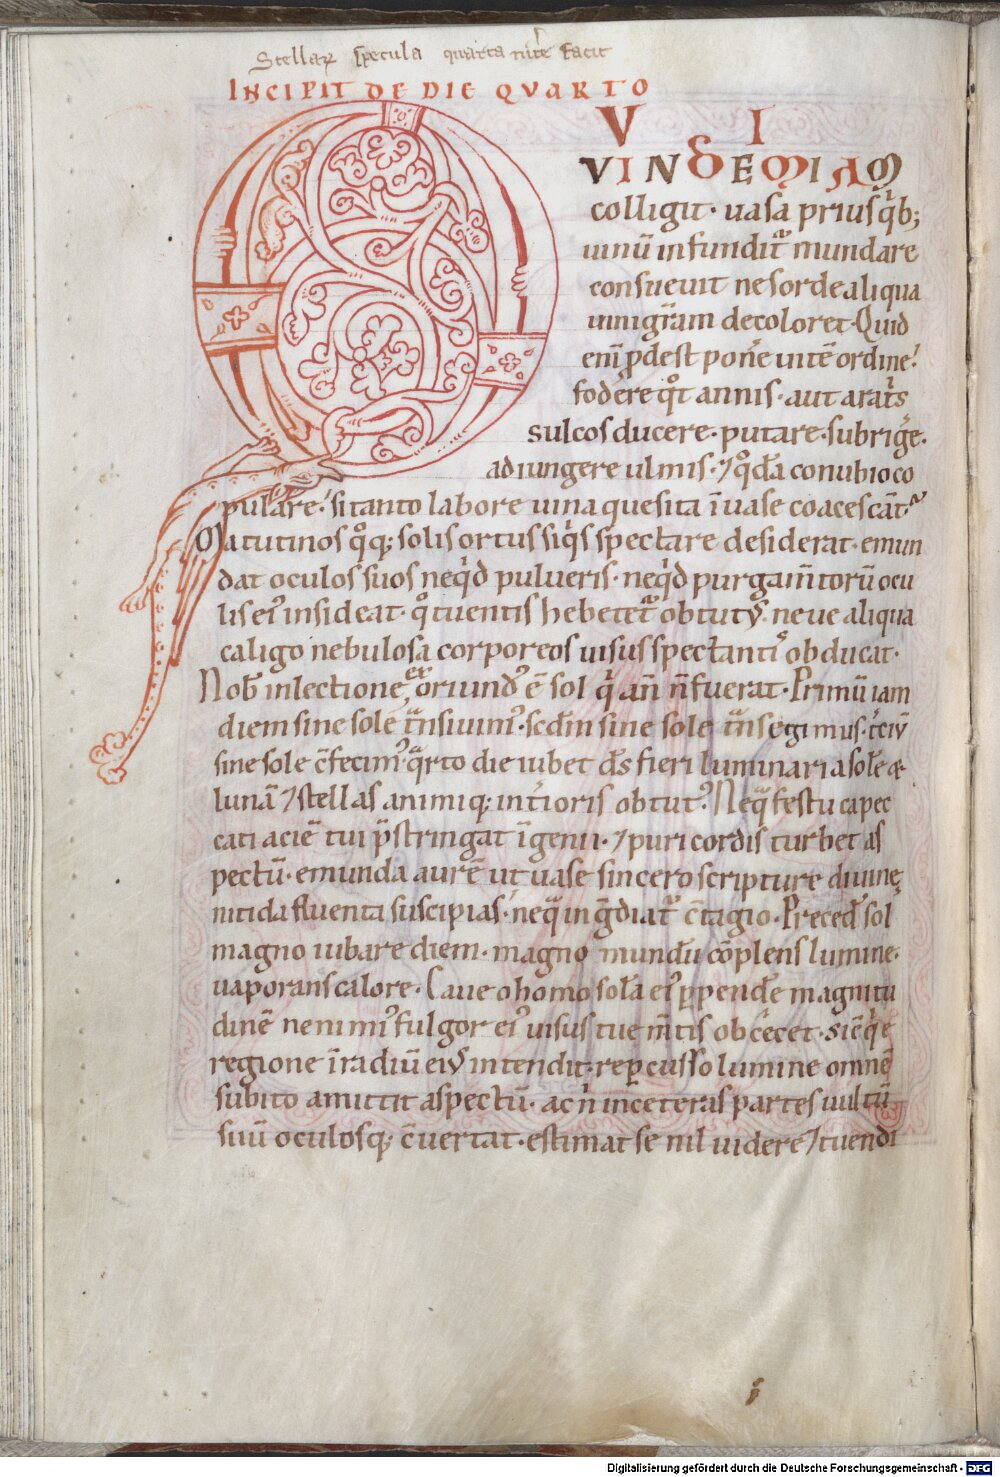 Stellarꝝ specula quarta nite facit
INCIPIT DE DIE QVARTO
Q V I
VINDEMIAM
colligit· uasa prius qͥb;
uinū infundit᷑ mundare
consueuit ne sorde aliqua
uini gr̄am decoloret· Quid
eni᷑ ꝓdest pon̄e uitē ordine?
fodere qͦt annis· aut aratͥs
sulcos ducere· putare· subriḡe·
adiungere ulmis· ⁊ qͦda conubio co
pulare· si tanto labore uina quesita ī uase coacescāt?
Matutinos qͦq; solis ortus siqͥs spectare desiderat· emun
dat oculos suos neqͥd pulueris· neqͥd purgam̄torū ocu
lis ei᷒ insideat· qͦ tuentis hebetet᷑ obtutꝰ· neue aliqua
caligo nebulosa corporeos uisus spectantiͦ obducat·
Nob̄ in lectione exoriundꝰ ē sol qͥ an̄ n̄ fuerat· Primū iam
diem sine sole tͣnsiuimꝰ· sc̄dm sine sole tͣnsegimus· tͥciū
sine sole c̄fecimꝰ· qͣrto die iubet d̄s fieri luminaria sole &
lunā ⁊ stellas animiq; int̄ioris obtutꝰ· Neqͣ festuca pec
cati aciē tui p̄stringat īgenii· ⁊ puri cordis turbet as
pectū· emunda aurē ut uase sincero scripturę diuinę
nitida fluenta suscipias· neqͣ ingͤdiat᷑ c̄tagio· Preced̄ sol
magno iubare diem· magno mundū cōplens lumine·
uaporans calore· Caue o homo sola ei᷒ ꝑpendere magnitu
dinē ne nimi᷒ fulgor ei᷒ uisus tue m̄tis obcecet· sic̄ qͥ e
regione ī radiū eiꝰ intendit· repcusso lumine omnē
subito amittit aspectū· ac n̄ in ceteras partes uultū
suū oculosq; c̄uertat· estimat se nil uidere ⁊ tuendi
Digitalisierung gefördert durch die Deutsche Forschungsgemeinschaft - DFG